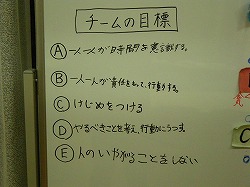 チームの目標
Ⓐ一人一人が日寺間を意識する。
Ⓑ一人一人が責任をもって、行動する。
Ⓒけじめをつける
Ⓓやるべきことを考え、行動にうつす。
Ⓔ人のいやがることをしない